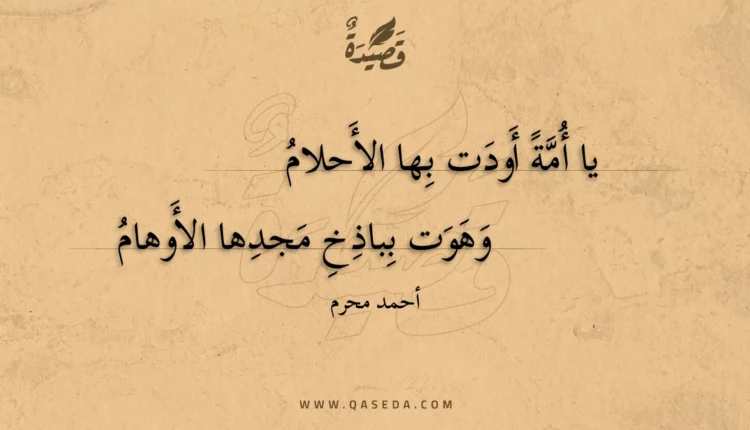 قَصِيدَةٌ
يا أُمَّةً أَودَت بِها الأَحلامُ
وَهَوَت بِباذِخِ مَجدِها الأَوهامُ
أحمد محرم
WWW.QASEDA.COM